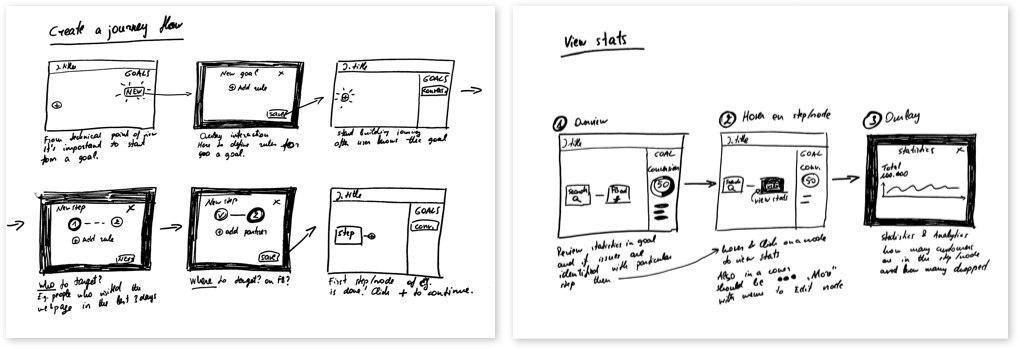 Create a journey flow
J. title
GOALS
NEW
From technical point of view
it's important to start
from a goal.
New goal x
+ Add rule
save
Overlay interaction
How to define rules for
a goal.
J. title
GOALS
+
start building journey
after user knows the goal
New step
1 --- 2
+ Add rule
Next
Who to target?
E.g. people who visited the
webpage in the last 3 days
New step
2
+ add partner
save
Where to target? on FB?
J. title
GOALS
conv.
step
+
First step/node of e.g.
is done. Click + to continue.
View stats
1 Overview
J. title
GOAL
conversion
50
Search
Q
FB ad
f
Review statistics in goal
and if issues are
identified with particular
step then
2 Hover on step/node
J. title
GOAL
conv.
50
Search
Q
view stats
hover & click on a node
to view stats
Also in a
should be ••• "More"
with menu to Edit node
3 Overlay
statistics x
Total
100.000
Statistics & Analytics
how many customers
in the step/node
and how many dropped